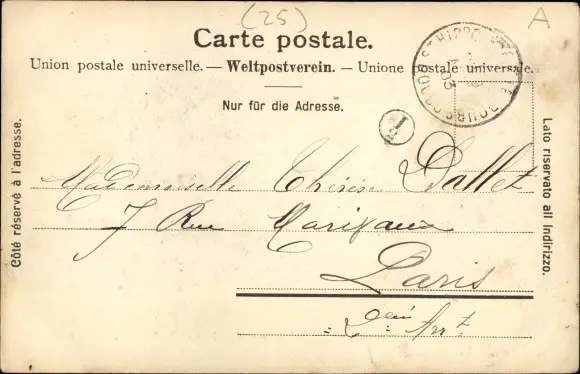 (25)
A
Carte postale.
Union postale universelle. — Weltpostverein. — Unione postale universale.
Nur für die Adresse.
Côté réservé à l'adresse.
Lato riservato all indirizzo.
Mademoiselle Thérèse Dallet
7 Rue
Paris
Arrt